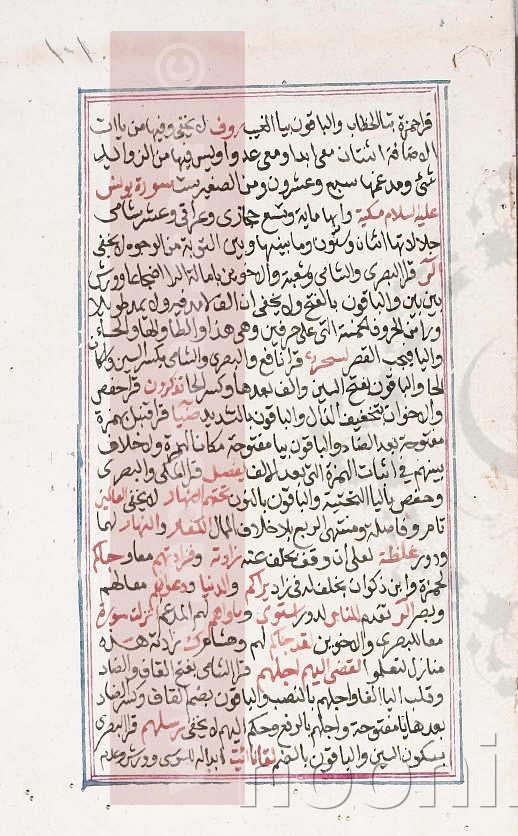 ١٠١
قرا حمزة بتا الخطاب والباقون بيا الغيب روف لا يخفى وفيها من ياات
الاضافة اثنتان معى ابدا ومعى عدوا وليس فيها من الزوايد
شئ ومدغمها سبع وعشرون ومن الصغير ست سورة يونس
عليه السلام مكية وايها ماية وتسع حجازى وعراقى وعشر شامى
جلالاتها اثنان وستون وما بينها وبين التوبة من الوجوه لا يخفى
الر قرا البصرى والشامى وشعبة والاخوين بامالة الرا اضجاعا وورش
بين بين والباقون بالفتح ولا يخفى ان الف لا مد فيه ولا يمد طويلا
ورا من الحروف الخمسة التى على حرفين وهى هذا والطا والها والحا
واليا فيجب القصر لسحر قرا نافع والبصرى والشامى بكسر السين واسكان
الحا والباقون بفتح السين والف بعدها وكسر الحا تذكرون قرا حفص
والاخوان بتخفيف الذال والباقون بالتشديد ضيا قرا قنبل بهمزة
مفتوحة بعد الضاد والباقون بيا مفتوحة مكان الهمزة ولا خلاف
بينهم فى اثبات الهمزة التى بعد الالف يفصل قرا المكى والبصرى
وحفص باليا التحتية والباقون بالنون تحتهم الانهار لا يخفى العالمين
تام وفاصلة ومنتهى الربع بلا خلاف الممال الكفار والنهار لهما
ودور غلظة لعلى ان وقف بخلف عنه زادته وفزادتهم معا وجاكم
لحمزة وابن ذكوان بخلف له فى زاد يراكم والدنيا ودعواهم معا لهم
وبصر الر تقدم للناس لدور استوى وماواهم لهم المدغم انزلت سورة
معا للبصرى والاخوين لقد جاكم لهم وهشام ك زادته هذه
منازل لتعلموا لقضى اليهم اجلهم قرا الشامى بفتح القاف والضاد
وقلب اليا الفا واجلهم بالنصب والباقون بضم القاف وكسر الضاد
بعدها يا مفتوحة واجلهم بالرفع وحكم اليهم لا يخفى رسلهم قرا البصرى
بسكون السين والباقون بالضم لقانا ائت ابداله للسوسى وورش وعدم
nooni